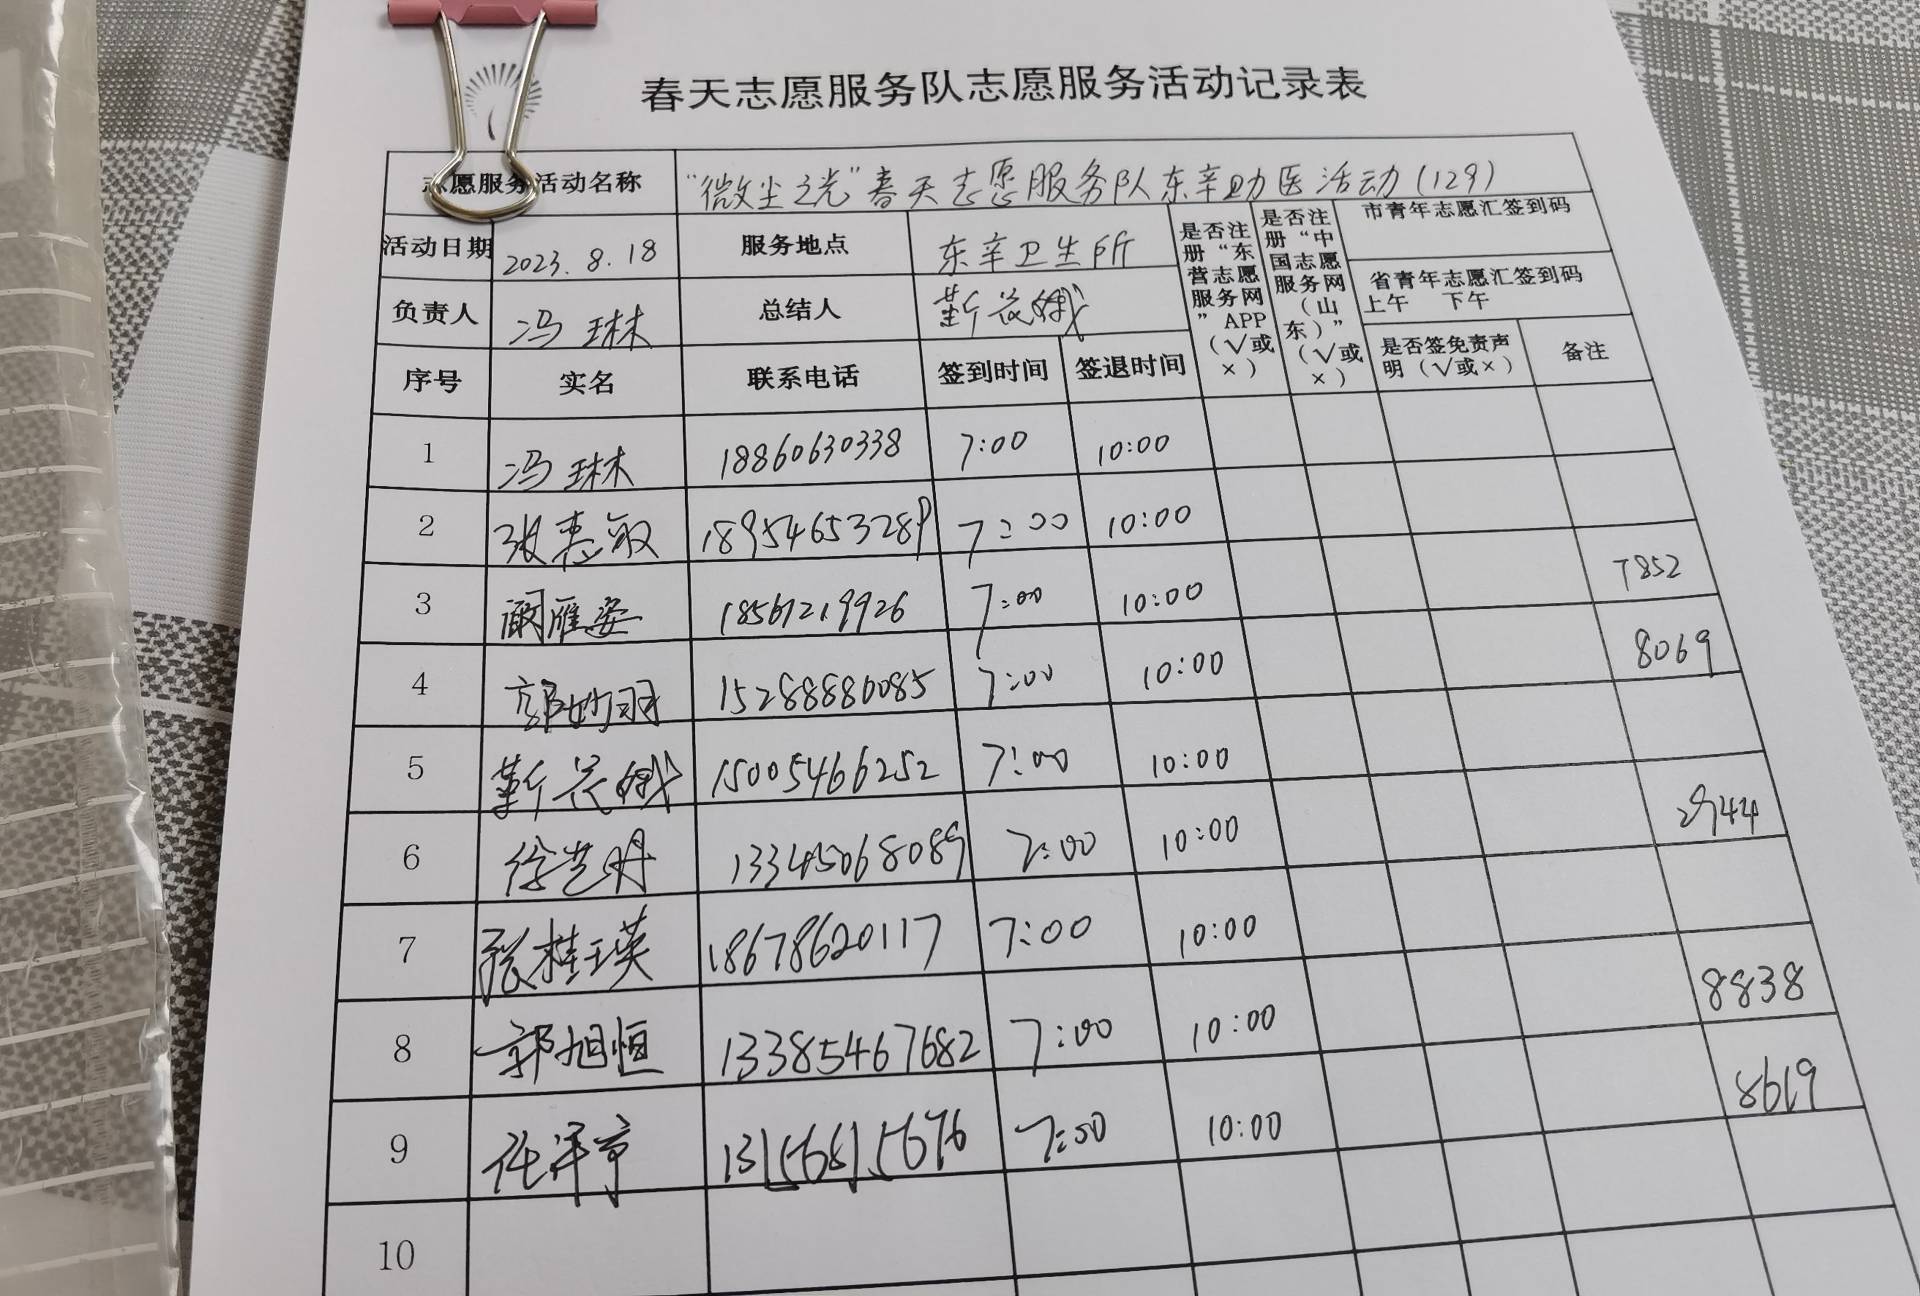 春天志愿服务队志愿服务活动记录表
志愿服务活动名称 “微尘之光”春天志愿服务队东辛助医活动(129)
活动日期 2023.8.18 服务地点 东辛卫生所 是否注册“东营志愿服务网”APP（√或×） 是否注册“中国志愿服务网（山东）”（√或×） 市青年志愿汇签到码
省青年志愿汇签到码
上午 下午
负责人 冯琳 总结人 靳兰娥
序号 实名 联系电话 签到时间 签退时间 是否签免责声明（√或×） 备注
1 冯琳 18860630338 7:00 10:00
2 张惠敏 18954653289 7:00 10:00
3 阚雁姿 18561219926 7:00 10:00 7852
4 郭妙羽 15288880085 7:00 10:00 8069
5 靳兰娥 15005466252 7:00 10:00
6 徐艺丹 13345068089 7:00 10:00 2944
7 张桂英 18678620117 7:00 10:00
8 郭旭恒 13385467682 7:00 10:00 8838
9 任泽京 13156815676 7:00 10:00 8619
10